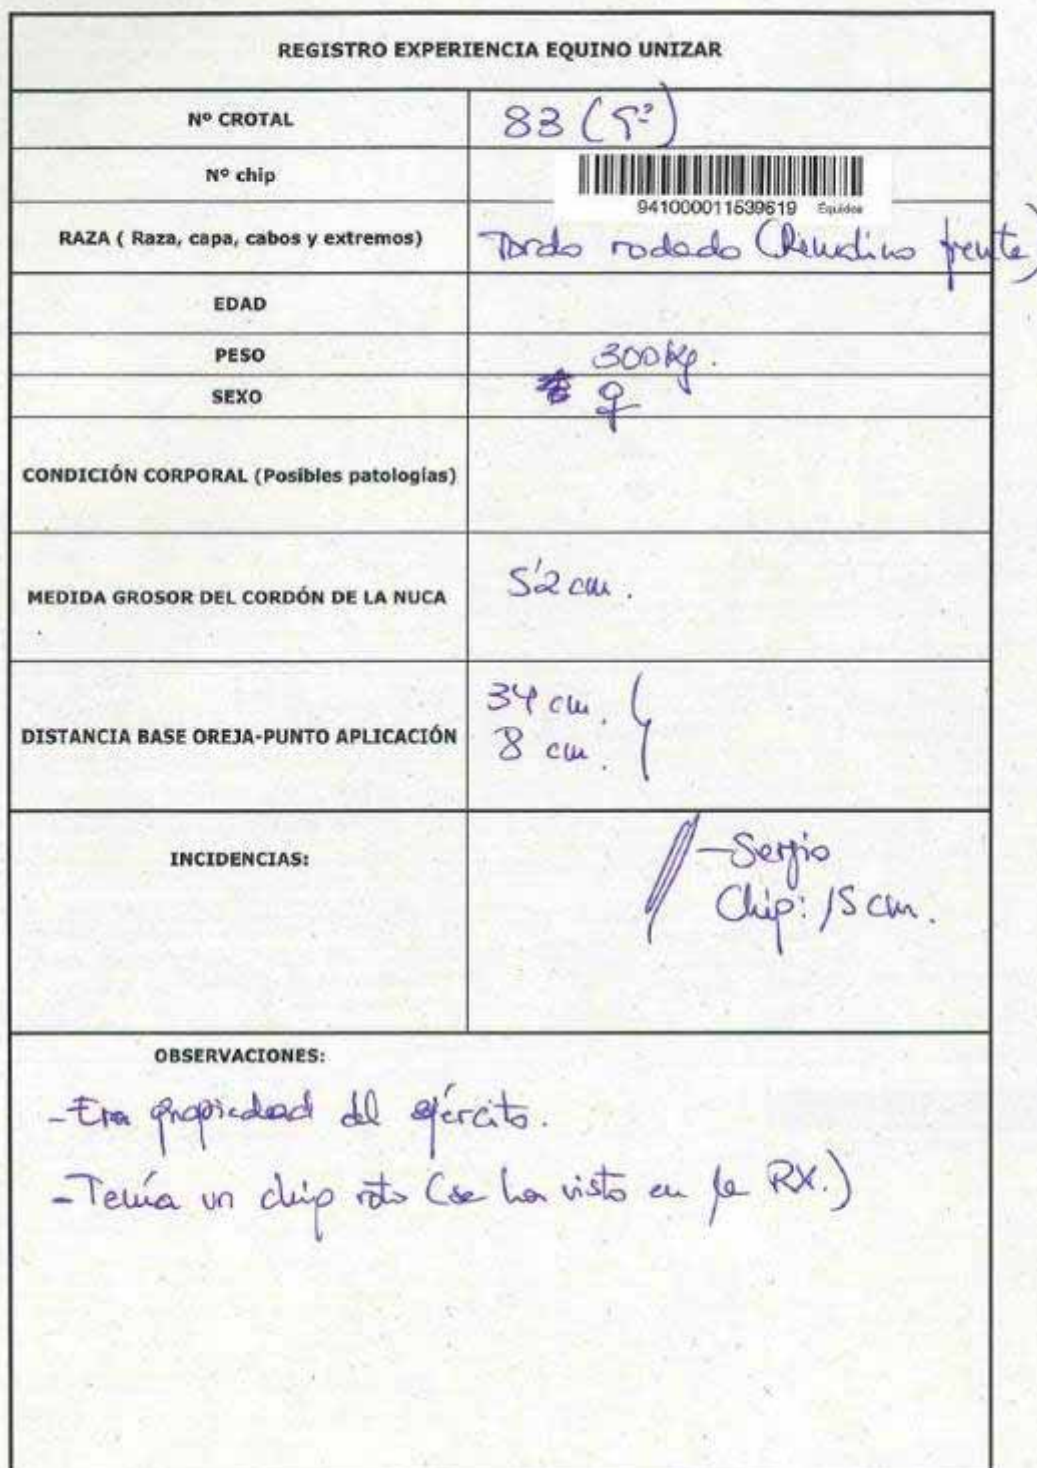 REGISTRO EXPERIENCIA EQUINO UNIZAR
Nº CROTAL 83 (5º)
Nº chip
941000011539619 Équidos
RAZA ( Raza, capa, cabos y extremos) Tordo rodado (Remolino frente)
EDAD
PESO 300 kg.
SEXO ♀
CONDICIÓN CORPORAL (Posibles patologías)
MEDIDA GROSOR DEL CORDÓN DE LA NUCA 5'2 cm.
34 cm.
DISTANCIA BASE OREJA-PUNTO APLICACIÓN 8 cm.
INCIDENCIAS: -Sergio
Chip: 15 cm.
OBSERVACIONES:
-Era propiedad del ejército.
-Tenía un chip roto (se ha visto en la RX.)